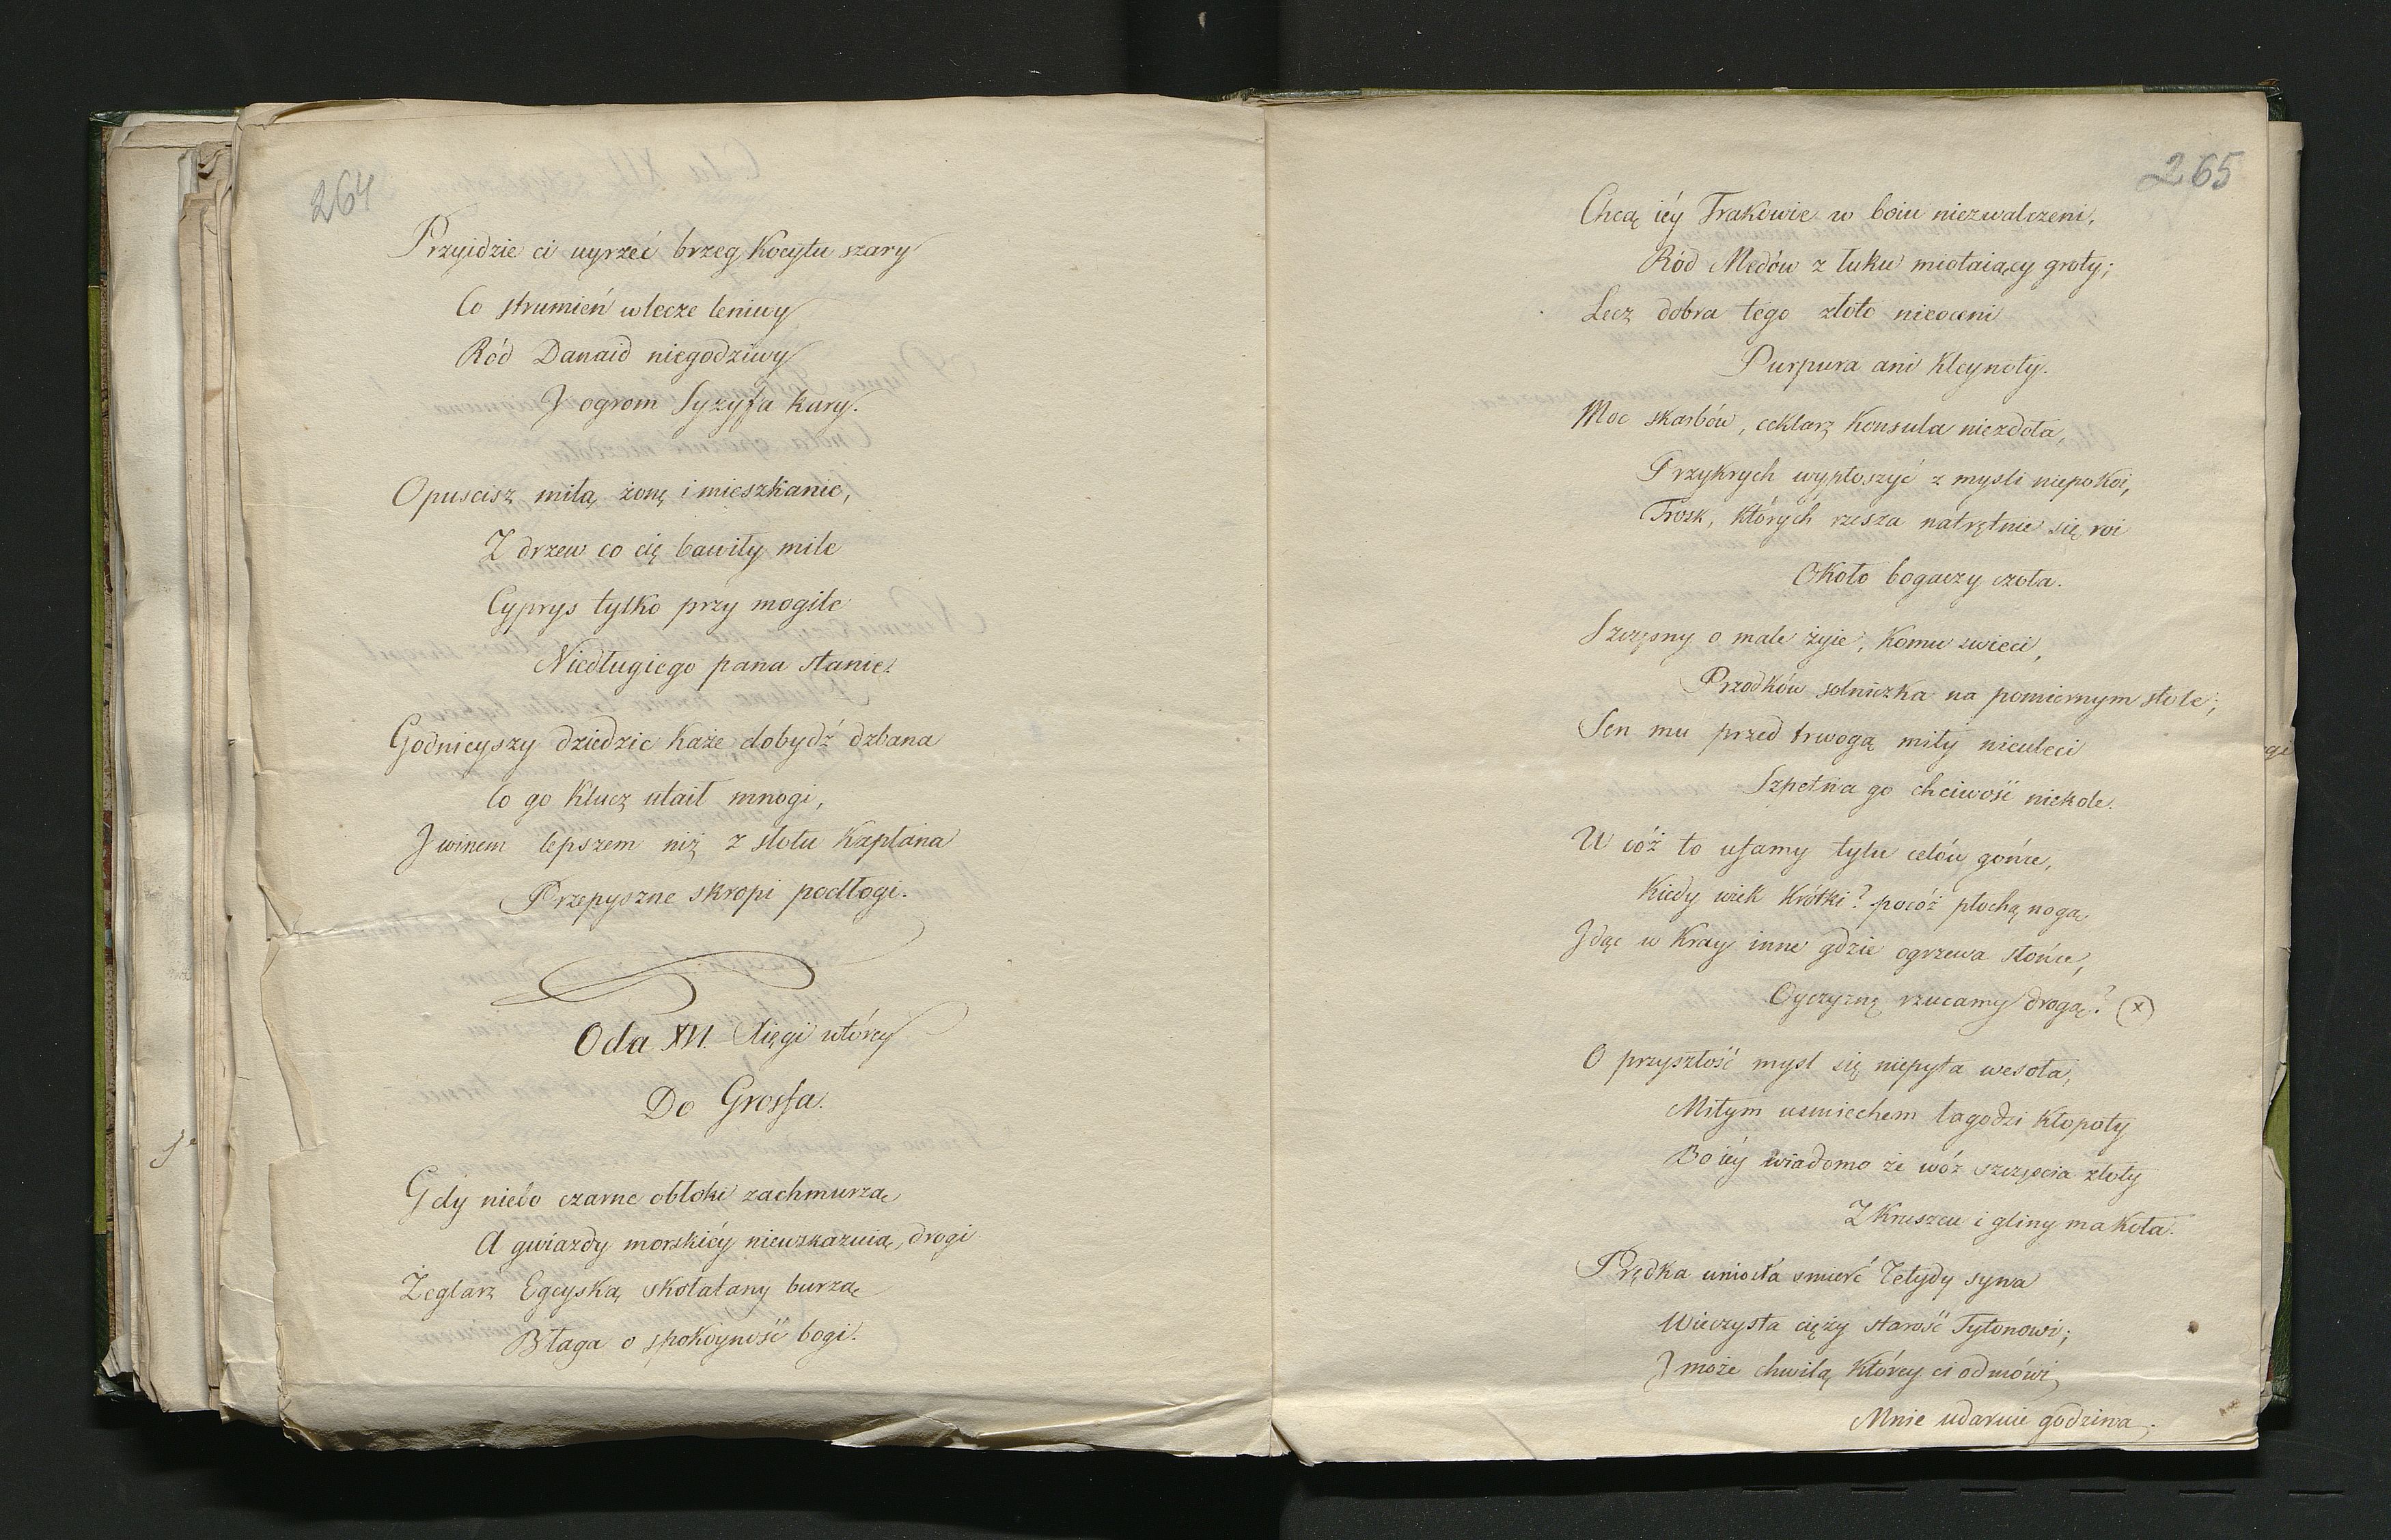 264
Przyidzie ci uyrzeć brzeg Kocytu szary
Co strumień wlecze leniwy
Ród Danaid niegodziwy
J ogrom Syzyfa kary.
Opuscisz miłą żonę i mieszkanie,
Z drzew co cię bawiły mile
Cyprys tylko przy mogile
Niedługiego pana stanie.
Godnieyszy dziedzic każe dobydź dzbana
Co go klucz utaił mnogi,
J winem lepszem niż z stołu Kapłana
Przepyszne skropi podłogi.
Oda XVI. Xięgi wtórey
Do Grosfa.
Gdy niebo czarne obłoki zachmurzą
A gwiazdy morskiéy niewskazuią drogi
Żeglarz Egeyską skołatany burzą
Błaga o spokoyność bogi.
265
Chcą iéy Trakowie w boiu niezwalczeni,
Ród Medów z łuku miotaiący groty;
Lecz dobra tego złoto nieoceni
Purpura ani kleynoty.
Moc skarbów, ceklarz Konsula niezdoła,
Przykrych wypłoszyć z mysli niepokoi,
Trosk, których rzesza natrętnie się roi
Około bogaczy czoła.
Szczęsny o male żyie, komu swieci,
Przodków solniczka na pomiernym stole;
Sen mu przed trwogą miły nieuleci
Szpetna go chciwość niekole.
W cóż to ufamy tylu celów gońce,
Kiedy wiek krótki? pocóż płochą nogą
Jdąc w kray inne gdzie ogrzewa słońce,
Oyczyznę rzucamy drogą? (x)
O przyszłość mysl się niepyta wesoła,
Miłym usmiechem łagodzi kłopoty
Bo iéy wiadomo że wóz szczęścia złoty
Z kruszcu i gliny ma koła.
Prędka uniosła smierć Tetydy syna
Wieczysta cięży starość Tytonowi;
J może chwilą którey ci odmówi
Mnie udaruie godzina.